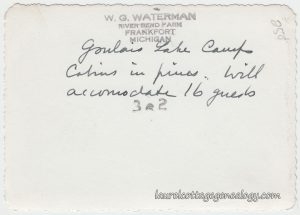 W. G. WATERMAN
RIVER BEND FARM
FRANKFORT
MICHIGAN
Goulais Lake Camp
Cabins in pines. Will
accomodate 16 guests
302
laurelcottagegenealogy.com